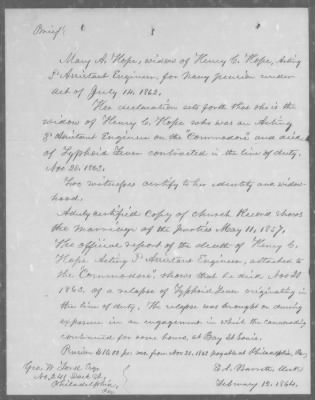 Brief:
Mary A. Hope, widow of Henry C. Hope, Acting
3d Assistant Engineer, for Navy pension under
act of July 14, 1862.
Her declaration sets forth that she is the
widow of Henry C. Hope who was an Acting
3d Assistant Engineer on the "Commodore" and died
of Typhoid Fever contracted in the line of duty,
Nov. 20. 1863.
Two witnesses certify to her identity and widow-
hood.
A duly certified copy of Church Record shows
the marriage of the parties May 11, 1857.
The official report of the death of Henry C.
Hope Acting 3d Assistant Engineer, attached to
the "Commodore" shows that he died Nov 20
1863, of a relapse of Typhoid Fever originating in
the line of duty. The relapse was brought on during
exposure in an engagement in which the Commodore
continued for some hours, at Bay St Louis.
Pension $10.00 per mo. from Nov. 20. 1863 payable at Philadelphia, Pa,
Geo. W. Ford Esq
No. 241 Dock St,
Philadelphia,
Pa
Clerk
February 12. 1864.